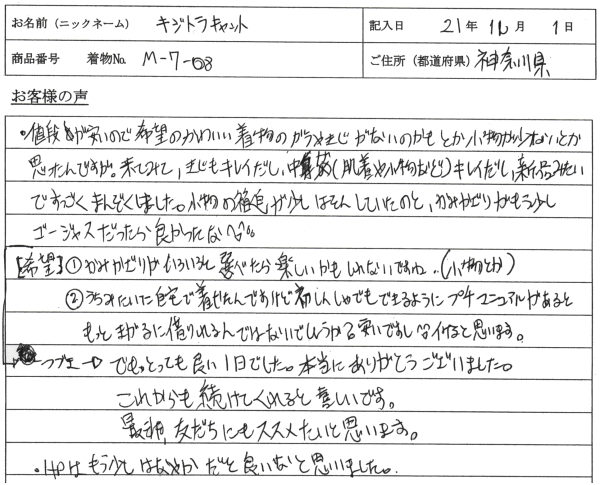 お名前（ニックネーム） キジトラキャット 記入日 21年 12月 1日
商品番号 着物No. M-7-08 ご住所（都道府県）神奈川県
お客様の声
・値段が安いので希望のかわいい着物のガラやきじがないのかもとか小物が少ないとか
思ったんですが。来てみて、きじもキレイだし、中身(肌着や小物など)キレイだし、新品みたい
ですっごくまんぞくしました。小物の箱が少しはそんしていたのと、かみかざりがもう少し
ゴージャスだったら良かったな
[希望]①かみかざりがいろいろと選べたら楽しいかもしれないですね..(小物とか)
②うちみたいに自宅で着せたんですけど初しんしゃでもできるようにプチマニュアルがあると
もっとまがるに借りれるんではないでしょうか?安いですし いけると思います。
でも、とっても良い1日でした。本当にありがとうございました。
これからも続けてくれると喜しいです。
友だちにもススメたいと思います。
・HPはもう少しはなやかだと良いなと思いました。